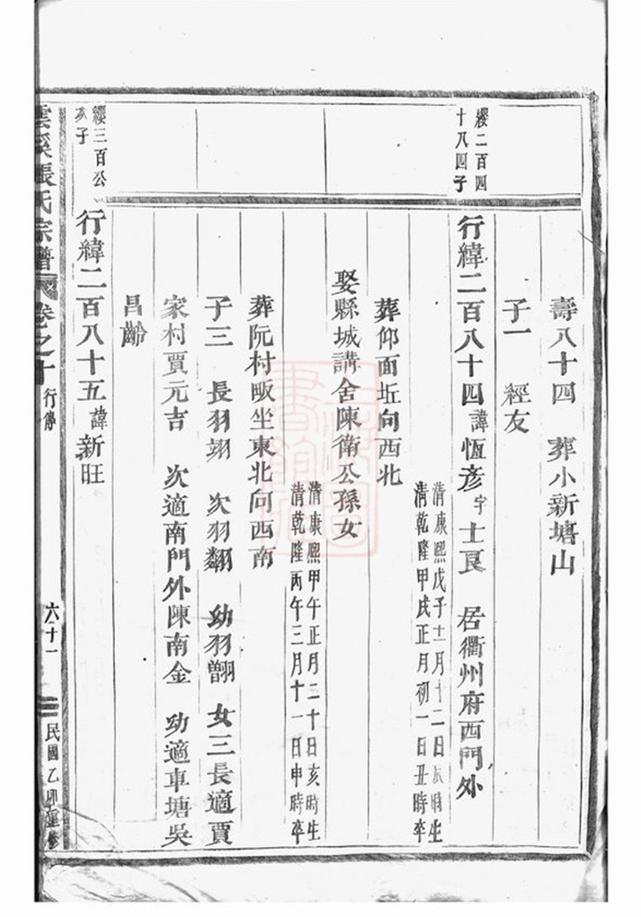 壽八十四　葬小新塘山
子一　經友
纓二百四
十八四子
行緯二百八十四諱恆彥字士良　居衢州府西門外
清康熙戊子十二月十二日辰時生
清乾隆甲戌正月初一日丑時卒
葬仰面坵向西北
娶縣城講舍陳衛公孫女
清康熙甲午正月二十日亥時生
清乾隆丙午三月十一日申時卒
葬阮村畈坐東北向西南
子三　長羽翊　次羽翻　幼羽翾　女三長適賈
家村賈元吉　次適南門外陳南金　幼適車塘吳
昌齡
纓三百公
次子
行緯二百八十五諱新旺
雲溪張氏宗譜　卷之十　行傳　六十一　民國乙卯重修